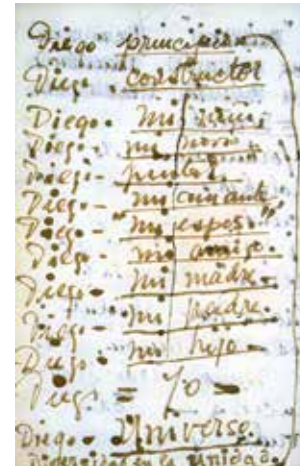 Diego principio
Diego constructor
Diego. mi niño.
Diego. mi novio
Diego- pintor.
Diego- mi amante
Diego- "mi esposo"
Diego- mi amigo.
Diego- mi madre.
Diego- mi padre.
Diego- mi hijo-
Diego = Yo =
Diego- Universo.
Diversidad en la unidad.